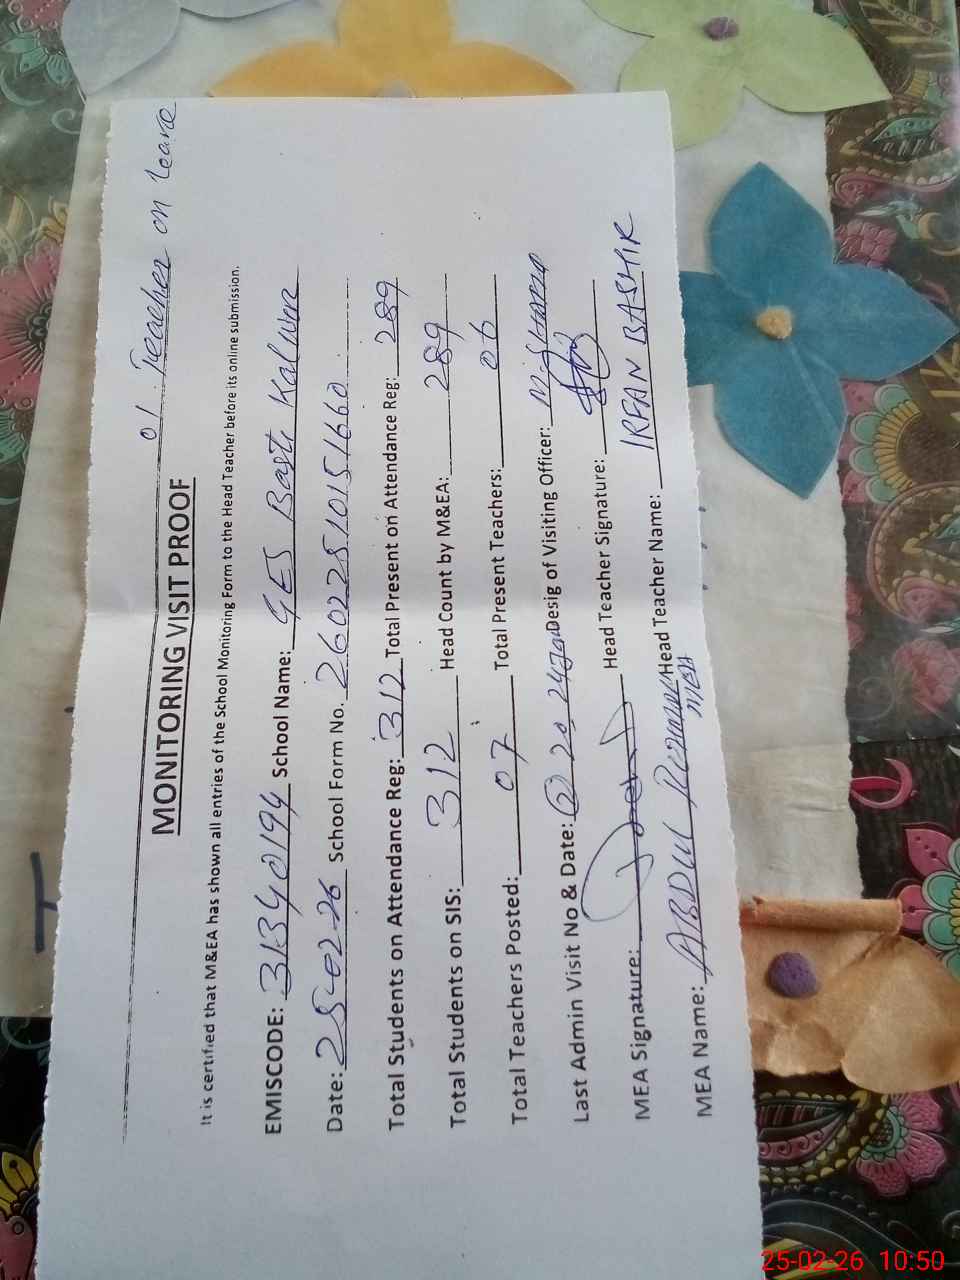 01 Teacher on leave
MONITORING VISIT PROOF
It is certified that M&EA has shown all entries of the School Monitoring Form to the Head Teacher before its online submission.
EMISCODE: 31340194 School Name: GES Basti Kalwar
Date: 25-02-26 School Form No. 260225101551660
Total Students on Attendance Reg: 312 Total Present on Attendance Reg: 289
Total Students on SIS: 312 Head Count by M&EA: 289
Total Teachers Posted: 07 Total Present Teachers: 06
Last Admin Visit No & Date: Desig of Visiting Officer:
MEA Signature: Head Teacher Signature:
MEA Name: ABDUL Rehman MEA Head Teacher Name: IRFAN BASHIR
25-02-26 10:50